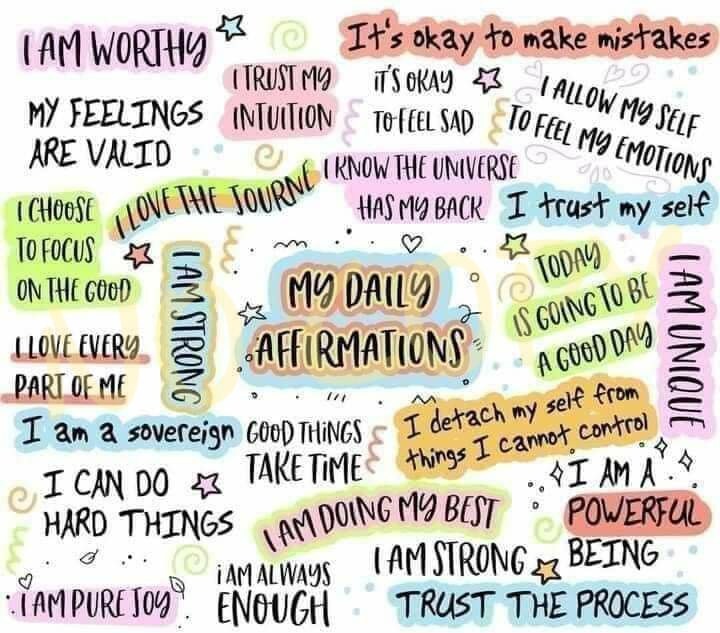 I AM WORTHY
It's okay to make mistakes
I TRUST MY
INTUITION
IT'S OKAY
TO FEEL SAD
I ALLOW MY SELF
TO FEEL MY EMOTIONS
MY FEELINGS
ARE VALID
I KNOW THE UNIVERSE
HAS MY BACK
I LOVE THE JOURNE
I trust my self
I CHOOSE
TO FOCUS
ON THE GOOD
I AM STRONG
MY DAILY
AFFIRMATIONS
TODAY
IS GOING TO BE
A GOOD DAY
I AM UNIQUE
I LOVE EVERY
PART OF ME
I am a sovereign
GOOD THINGS
TAKE TIME
I detach my self from
things I cannot control
I CAN DO
HARD THINGS
I AM DOING MY BEST
I AM A
POWERFUL
BEING
I AM PURE JOY
I AM ALWAYS
ENOUGH
I AM STRONG
TRUST THE PROCESS